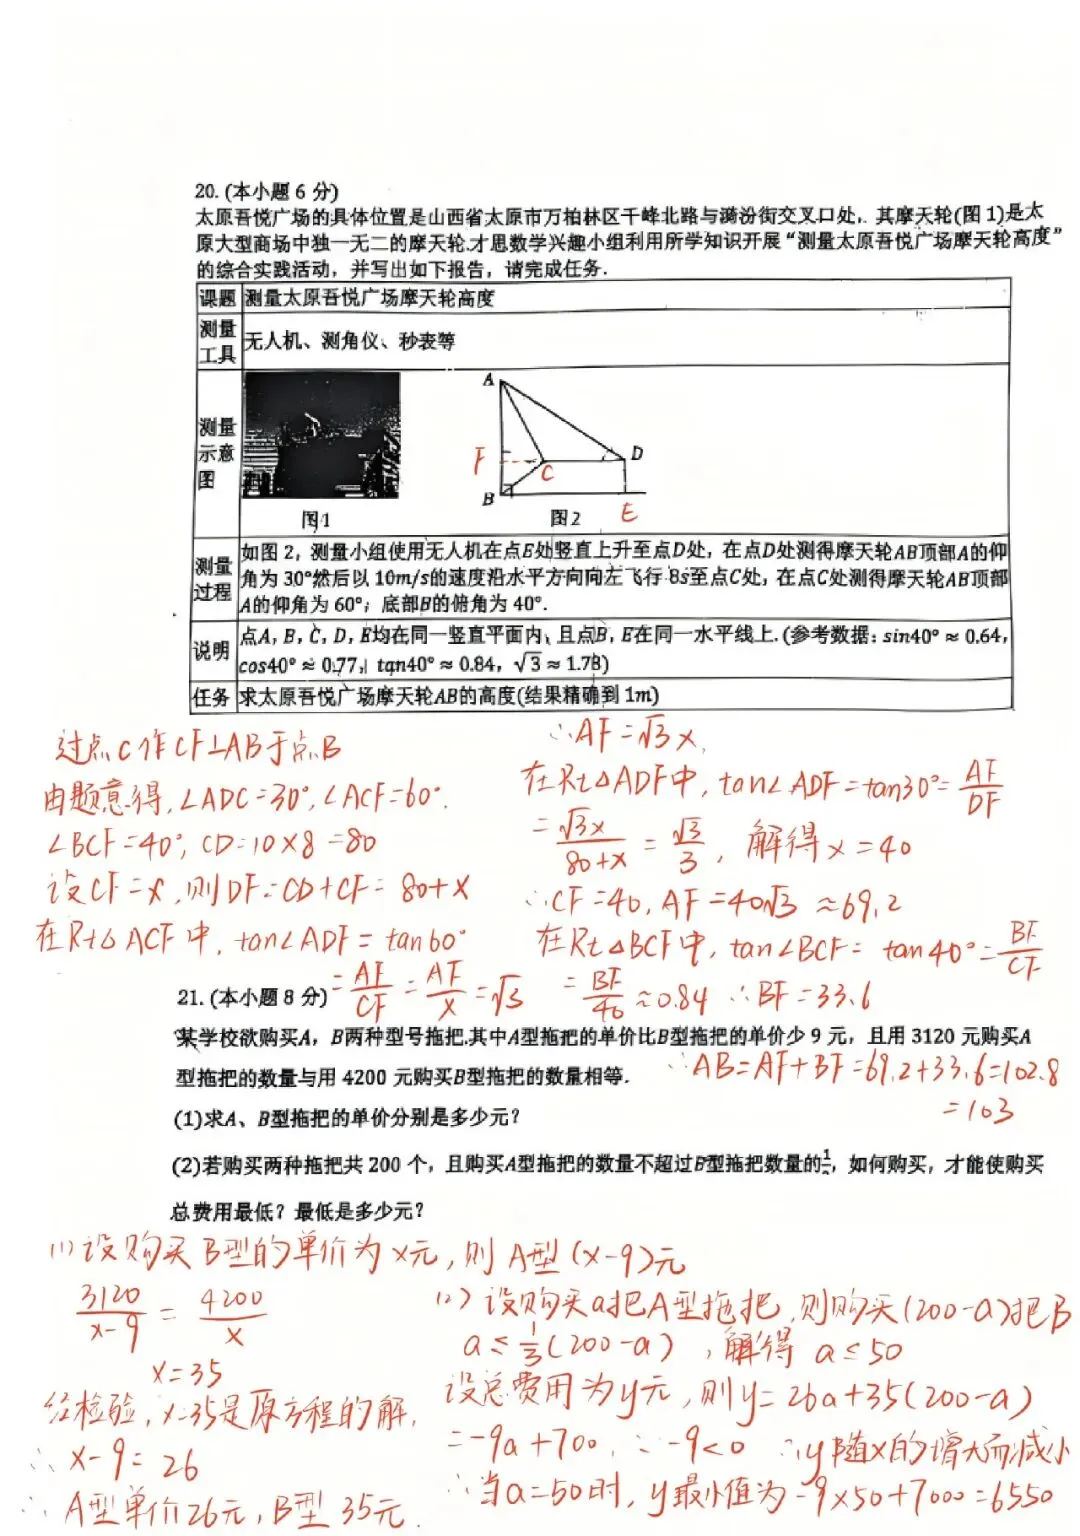 20. (本小题 6 分)
太原吾悦广场的具体位置是山西省太原市万柏林区千峰北路与漪汾街交叉口处,. 其摩天轮(图 1)是太
原大型商场中独一无二的摩天轮.才思数学兴趣小组利用所学知识开展“测量太原吾悦广场摩天轮高度”
的综合实践活动，并写出如下报告，请完成任务.
课题 测量太原吾悦广场摩天轮高度
测量工具 无人机、测角仪、秒表等
测量示意图
A
F
C
D
B
E
图1 图2
测量过程
如图 2，测量小组使用无人机在点E处竖直上升至点D处，在点D处测得摩天轮AB顶部A的仰
角为 30°然后以 10m/s的速度沿水平方向向左飞行 8s至点C处，在点C处测得摩天轮AB顶部
A的仰角为 60°；底部B的俯角为 40°.
说明
点A，B，C，D，E均在同一竖直平面内、且点B，E在同一水平线上.(参考数据: sin40° ≈ 0.64,
cos40° ≈ 0.77, tan40° ≈ 0.84, √3 ≈ 1.78)
任务 求太原吾悦广场摩天轮AB的高度(结果精确到 1m)
过点C作CF⊥AB于点B
由题意得,∠ADC=30°,∠ACF=60°.
∠BCF=40°, CD=10×8=80
设CF=x,则DF=CD+CF=80+x
在Rt△ACF中, tan∠ADF=tan60°
=AF/CF=AF/x=√3
∴AF=√3x,
在Rt△ADF中, tan∠ADF=tan30°=AF/DF
=√3x/80+x=√3/3, 解得x=40
∴CF=40, AF=40√3≈69.2
在Rt△BCF中, tan∠BCF=tan40°=BF/CF
=BF/40≈0.84 ∴BF=33.6
∴AB=AF+BF=69.2+33.6=102.8
=103
21. (本小题 8 分)
某学校欲购买A，B两种型号拖把.其中A型拖把的单价比B型拖把的单价少 9 元，且用 3120 元购买A
型拖把的数量与用 4200 元购买B型拖把的数量相等.
(1)求A、B型拖把的单价分别是多少元?
(2)若购买两种拖把共 200 个，且购买A型拖把的数量不超过B型拖把数量的，如何购买，才能使购买
总费用最低？最低是多少元?
(1)设购买B型的单价为x元,则A型(x-9)元
3120/x-9=4200/x
x=35
经检验,x=35是原方程的解.
∴x-9=26
∴A型单价26元,B型35元.
(2)设购买a把A型拖把,则购买(200-a)把B
a≤1/3(200-a),解得 a≤50
设总费用为y元,则y=26a+35(200-a)
=-9a+700, ∵-9<0 ∴y随x的增大而减小
∴当a=50时,y最小值为-9×50+7000=6550